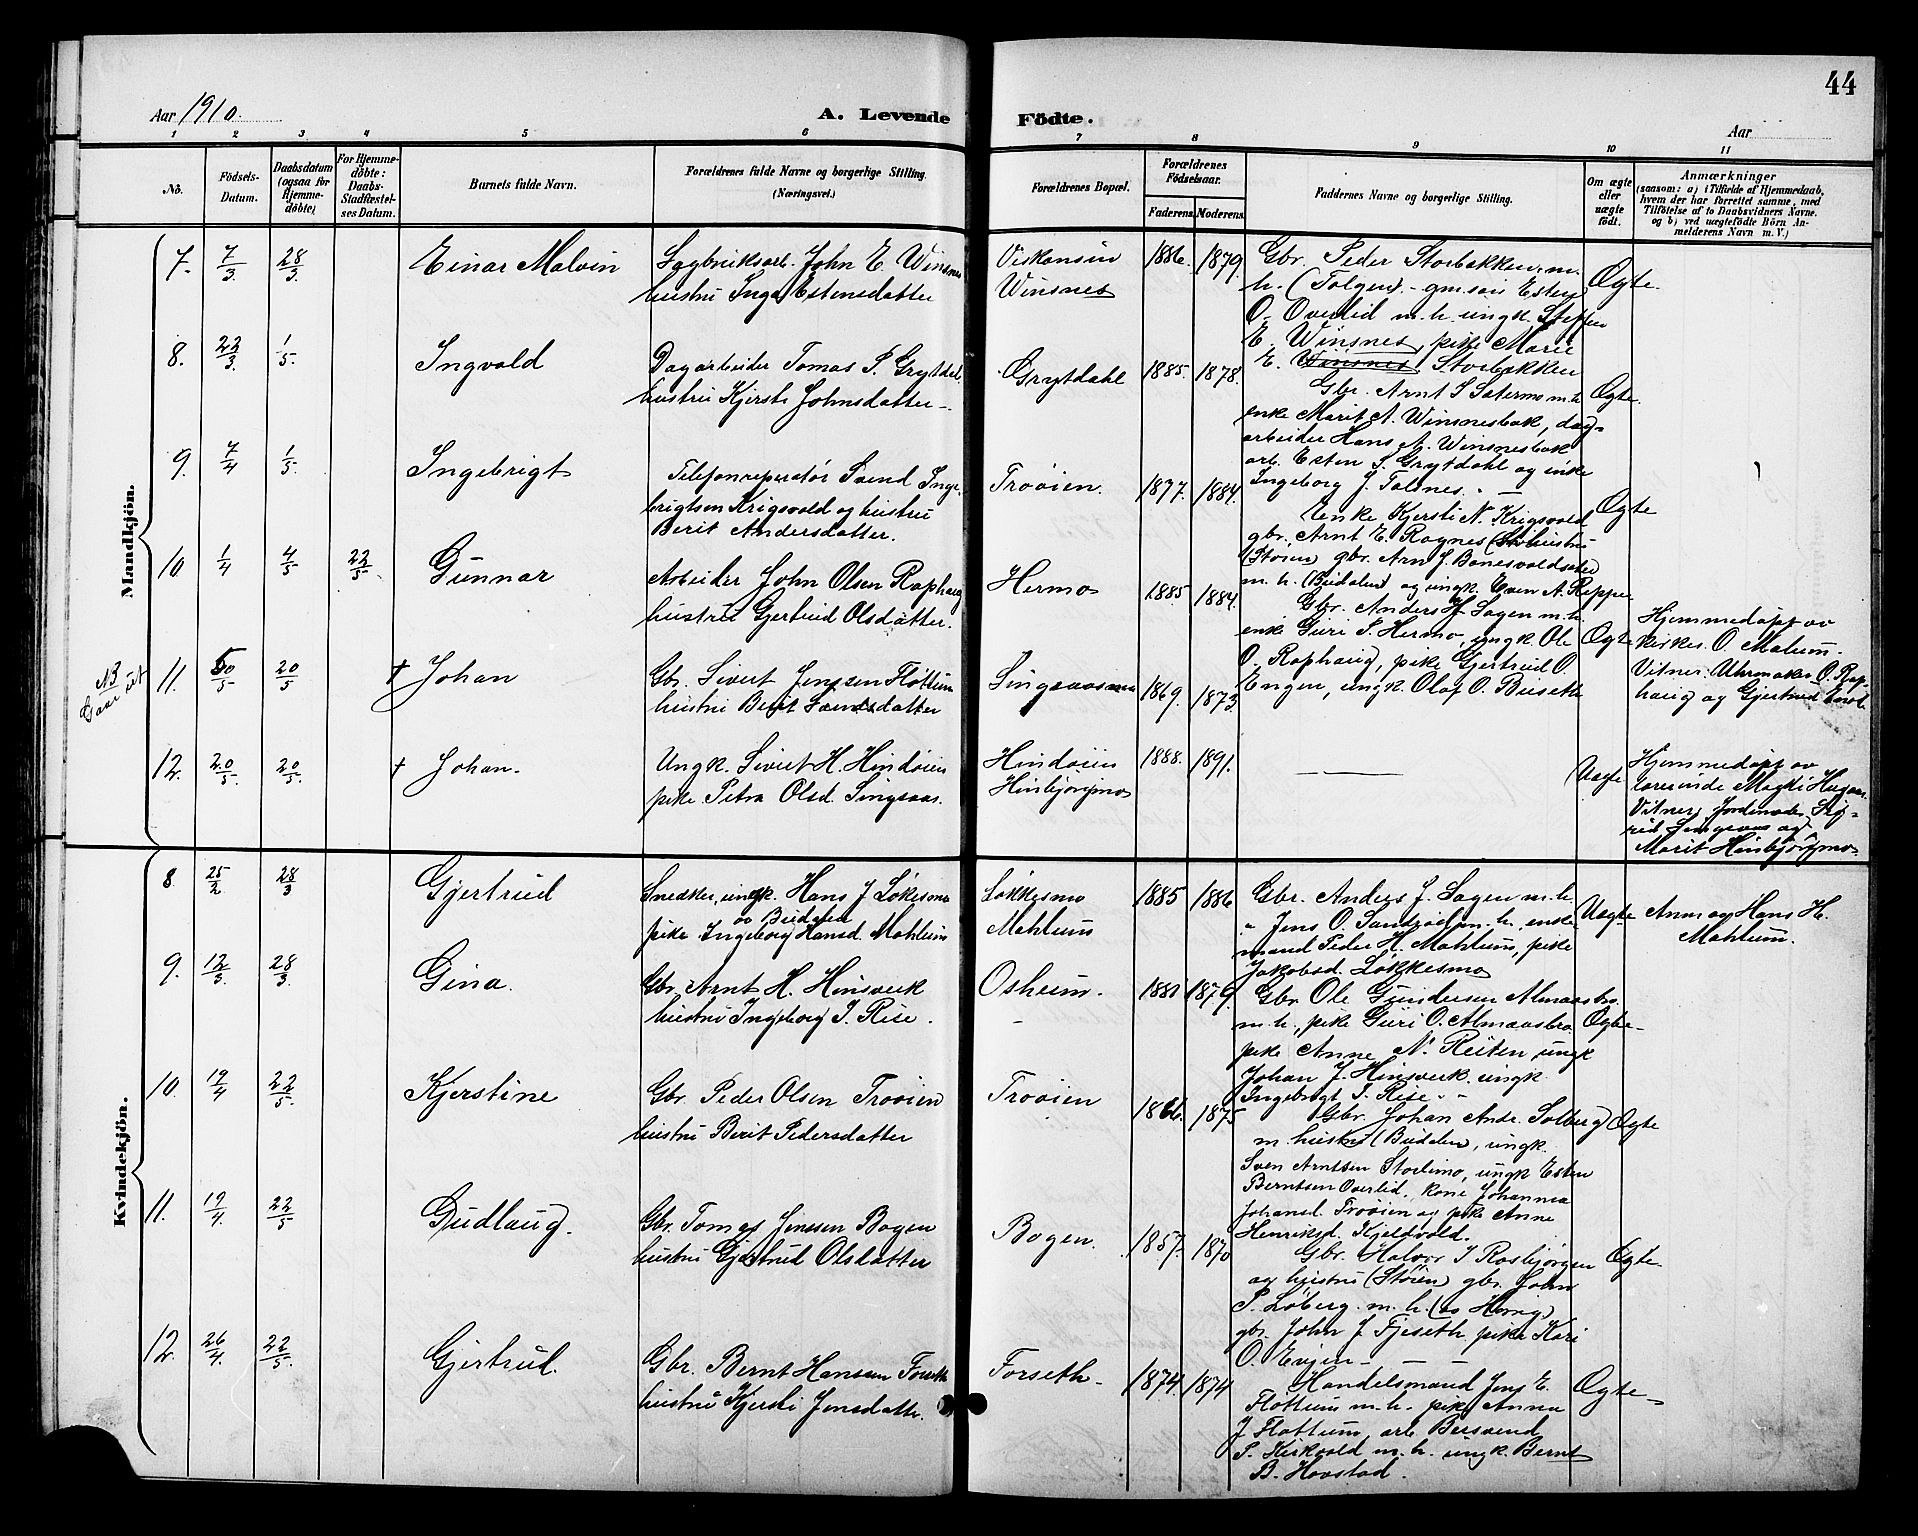 44
Aar 1910.
A. Levende
Födte.
Aar
1 2 3 4 5 6 7 8 9 10 11
No.
Födsels-
Datum.
Daabsdatum
(ogsaa for
Hjemme-
døbte)
For Hjemme-
døbte:
Daabs-
Stadfæstel-
ses Datum.
Barnets fulde Navn.
Forældrenes fulde Navne og borgerlige Stilling.
(Næringsvei.)
Forældrenes Bopæl.
Forældrenes
Födselsaar.
Faderens.
Moderens.
Faddernes Navne og borgerlige Stilling.
Om ægte
eller
uægte
födt.
Anmærkninger
(saasom: a) i Tilfælde af Hjemmedaab,
hvem der har forrettet samme, med
Tilföielse af to Daabsvidners Navne.
og b) ved uægtefödte Börn An-
melderens Navn m. V.)
Mandkjön.
7. 7/3 28/3 Einar Malvin
Sagbruksarb. John E. Winsnes
hustru Inga Estensdatter
Viskansin
Winsnes
1886. 1879.
Gbr. Peder Storbakken m.
h. (Tolgen). - gm.søis Esten
O. Overlid m. h. ungk. Steffen
E. Winsnes, pike Marie
E. Winsnes Storbakken
Ægte.
8. 22/3 1/5 Ingvald
Dagarbeider Tomas S. Grytdal
hustru Kjersti Johnsdatter
Grytdahl
1885. 1878.
Gbr. Arnt S Sætermo m. h
enke Marit A. Winsnesbak, dag-
arbeider Hans A. Winsnesbak
arb. Esten S. Grytdahl og enke
Ingeborg J. Folsnes.
Ægte.
9. 7/4 1/5 Ingebrigt
Telefonreperatør Svend Inge-
brigtsen Krigsvold og hustru
Berit Andersdatter.
Trøoien.
1877. 1884.
Enke Kjersti N. Krigsvold
gbr. Arnt E. Rognes hustru
(Støren) gbr. Arn J. Bonesvoldsæter
m. h. (Budalen) og ungk. Even A. Reppe
Ægte
10 1/4 4/5 22/5 Gunnar
Arbeider John Olsen Raphaug
hustru Gjertrud Olsdatter.
Hermo
1885 1884.
Gbr. Anders J. Sagen m. h.
enke Guri S. Hermo, ungk Ole
O. Raphaug, pike Gjertrud O.
Engen, ungk Olaf O. Buseth
Ægte
Hjemmedøpt av
kirkes. O. Malum.
Vitner: Uhrmaker O. Rap-
haug og Gjertrud
NB
Gaar ut
11. 5/5 20/5 † Johan
Gbr. Sivert Jenssen Fløttum
hustru Berit Svensdatter
Singsaasmo
1869. 1873.
12. 20/5 20/5 † Johan.
Ungk. Sivert H. Hindøien
pike Petra Olsd. Singsaas.
Hindøien
Hinbjørgmo
1888. 1891.
Uægte
Hjemmedøpt av
lærerinde Magli Hagen
Vitner, Jordmoder Sig-
rid Singsaas og
Marit Hinbjørgmo.
Kvindekjön.
8 25/2 28/3 Gjertrud
Snedker, ungk. Hans J Løkesmo
av Budalen
pike Ingeborg Hansd. Mahlum
Løkkesmo
Mahlum
1885 1886
Gbr. Anders J. Sagen m. h.
" Jens O. Sandrød m. h., enke
mand Peder H. Mahlum, pike
Jakobsd. Løkkesmo
Uægte
Anm og Hans H.
Mahlum.
9. 12/3 28/3 Gina.
Gbr. Arnt H. Hinsverk
hustru Ingeborg I. Rise.
Osheim.
1880 1879.
Gbr. Ole Gundersen Almaasbro.
m. h., pike Guri O. Almaasbro
pike Anne N. Reiten ungk
Johan J. Hinsverk. ungk.
Ingebrigt I. Rise
Ægte
10. 19/4 22/5. Kjerstine
Gbr. Peder Olsen Trøoien
hustru Berit Pedersdatter
Trøoien
1866. 1875
Gbr. Johan Andr. Solberg
m. hustru (Budalen), ungk.
Sven Arntsen Storlimo, ungk Esten
Berntsen Overlid, kone Johanna
Johansd. Trøoien og pike Anne
Henriksd. Kjeldvold.
Ægte
11. 19/4. 22/5 Gudlaug.
Gbr. Tomas Jenssen Bogen
hustru Gjertrud Olsdatter
Bogen.
1857. 1870
Gbr. Halvor I Rosbjørgen
og hustru (Støren) gbr. John
P. Løberg. m. h. (av Horrig)
gbr. John J. Fjeseth. pike Kari
O. Evjen
Ægte.
12. 26/4. 22/5. Gjertrud.
Gbr. Bernt Hansen Forseth
hustru Kjersti Jensdatter.
Forseth
1874. 1874
Handelsmand Jens E.
Flottum m. h. pike Anna
J Flottum, arb. Bersvend
S. Kirkvold m. h. ungk. Bernt
B. Hovstad.
Ægte